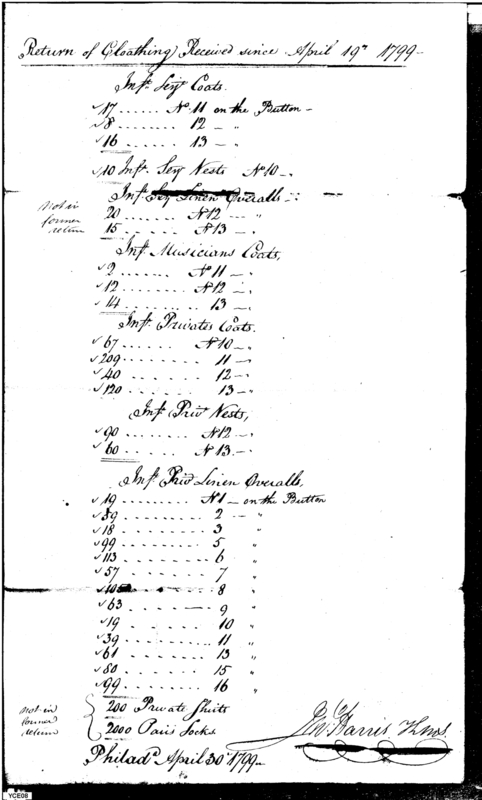 Return of Cloathing Received since April 19th 1799
Inf. Serj Coats.
17 ...... No 11 on the Button
8 ........ 12 "
16 ....... 13 "
10 Inf. Serj Vests No 10 "
Inf. Serj Linen Overalls "
not in former return
20 ....... N 12 "
15 ....... N 13 "
Inf. Musicians Coats,
2 ....... No 11 "
12 ....... N 12 "
14 ........ 13 "
Inf. Privates Coats.
67 ....... N 10 "
209 ....... 11 "
40 ........ 12 "
120 ....... 13 "
Inf. Priv Vests,
90 ....... N 12 "
60 ....... N 13 "
Inf. Priv Linen Overalls,
19 ......... N 1 on the Button
39 ......... 2 "
18 ......... 3 "
99 ......... 5 "
113 ........ 6 "
57 ......... 7 "
8 "
63 ......... 9 "
19 ......... 10 "
39 ......... 11 "
61 ......... 13 "
80 ......... 15 "
99 ......... 16 "
not in former return
200 Private Shirts
2000 Pairs Socks
Jno Harris
Philad. April 30th 1799
YCE08